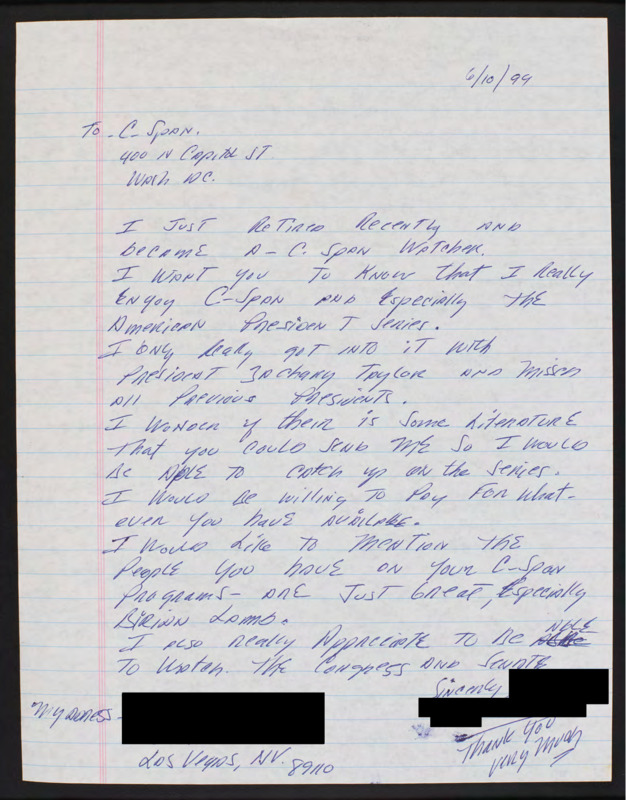 6/10/99
To - C-Span.
400 N Capitol ST.
Wash DC.
I Just Retired Recently and
became A - C. Span Watcher.
I want you to know that I really
enjoy C-Span and Especially the
American President Series.
I only really got into it with
President Zachary Taylor and missed
all Previous Presidents.
I wonder if their is some literature
that you could send me so I would
be Able to catch up on the series.
I would be willing to pay for what-
ever you have available.
I would like to mention the
people you have on your C-Span
programs - are just great, Especially
Birian Lamb.
I also really Appreciate to be able
to watch the Congress and Senate
Sincerely
My adress -
Las Vegas, NV. 89110
Thank You
very much